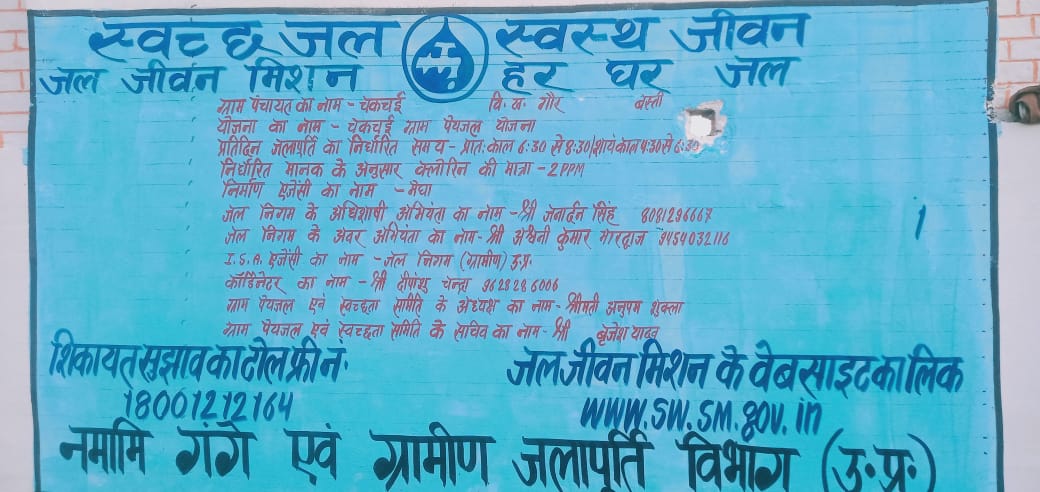 स्वच्छ जल स्वस्थ जीवन
जल जीवन मिशन हर घर जल
ग्राम पंचायत का नाम - चेकचई वि. ख. गौर बस्ती
योजना का नाम - चेकचई ग्राम पेयजल योजना
प्रतिदिन जलापूर्ति का निर्धारित समय - प्रातः काल 6:30 से 8:30/शायंकाल 4:30 से 6:30
निर्धारित मानक के अनुसार क्लोरिन की मात्रा - 2 PPM
निर्माण एजेंसी का नाम - मेघा
जल निगम के अधिशाषी अभियंता का नाम - श्री जनार्दन सिंह 8081296667
जल निगम के अवर अभियंता का नाम - श्री अश्वनी कुमार भारद्वाज 9454032116
I.S.A. एजेंसी का नाम - जल निगम (ग्रामीण) उ.प्र.
कॉर्डिनेटर का नाम - श्री दीपांशु चन्द्रा 9628286006
ग्राम पेयजल एवं स्वच्छता समिति के अध्यक्ष का नाम - श्रीमती अनुपम शुक्ला
ग्राम पेयजल एवं स्वच्छता समिति के सचिव का नाम - श्री बृजेश यादव
शिकायत सुझाव का टोल फ्री नं. जल जीवन मिशन के वेबसाइट का लिंक
18001212164 WWW.SW.SM.gov.in
नमामि गंगे एवं ग्रामीण जलापूर्ति विभाग (उ.प्र.)